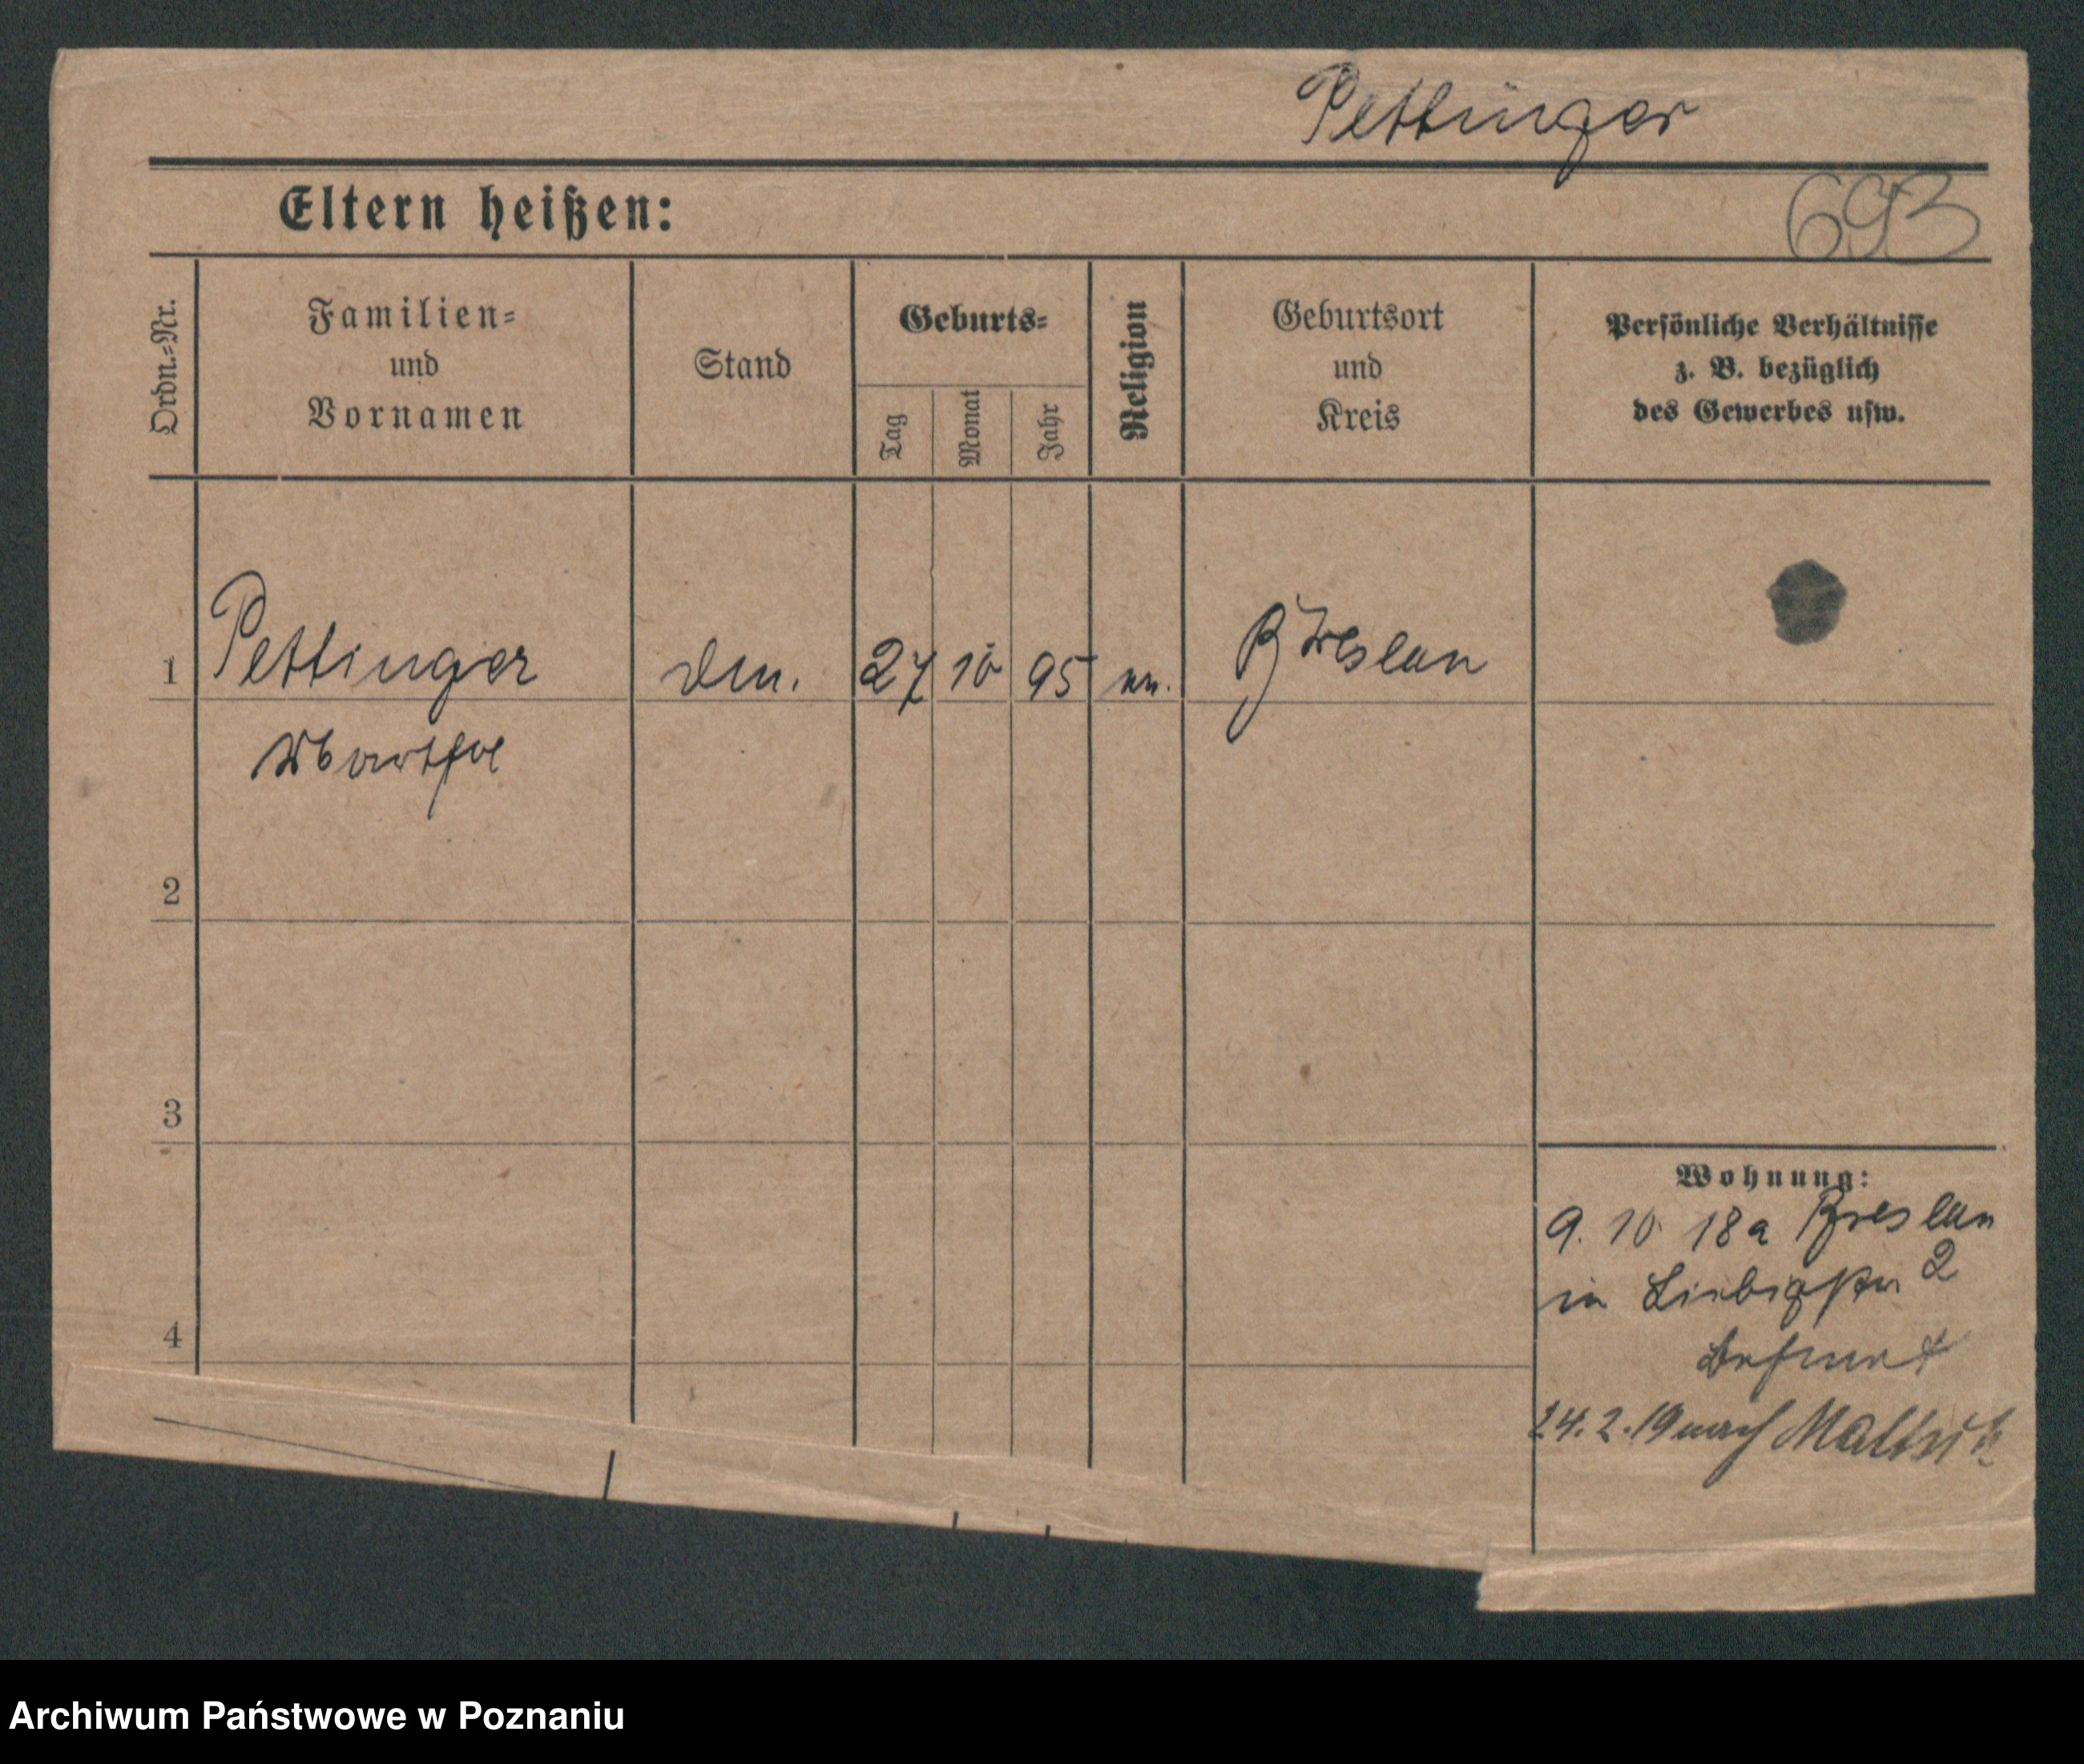 Pettinger
Eltern heißen:
693
Ordn.=Nr.
Familien=
und
Vornamen
Stand
Geburts=
Tag
Monat
Jahr
Religion
Geburtsort
und
Kreis
Persönliche Verhältnisse
z. B. bezüglich
des Gewerbes usw.
1 Pettinger 27 10 95 Breslau
Martha
2
3
Wohnung:
9. 10 18 a Breslau
in Liebigstr 2
4
24. 2. 19 nach
Archiwum Państwowe w Poznaniu